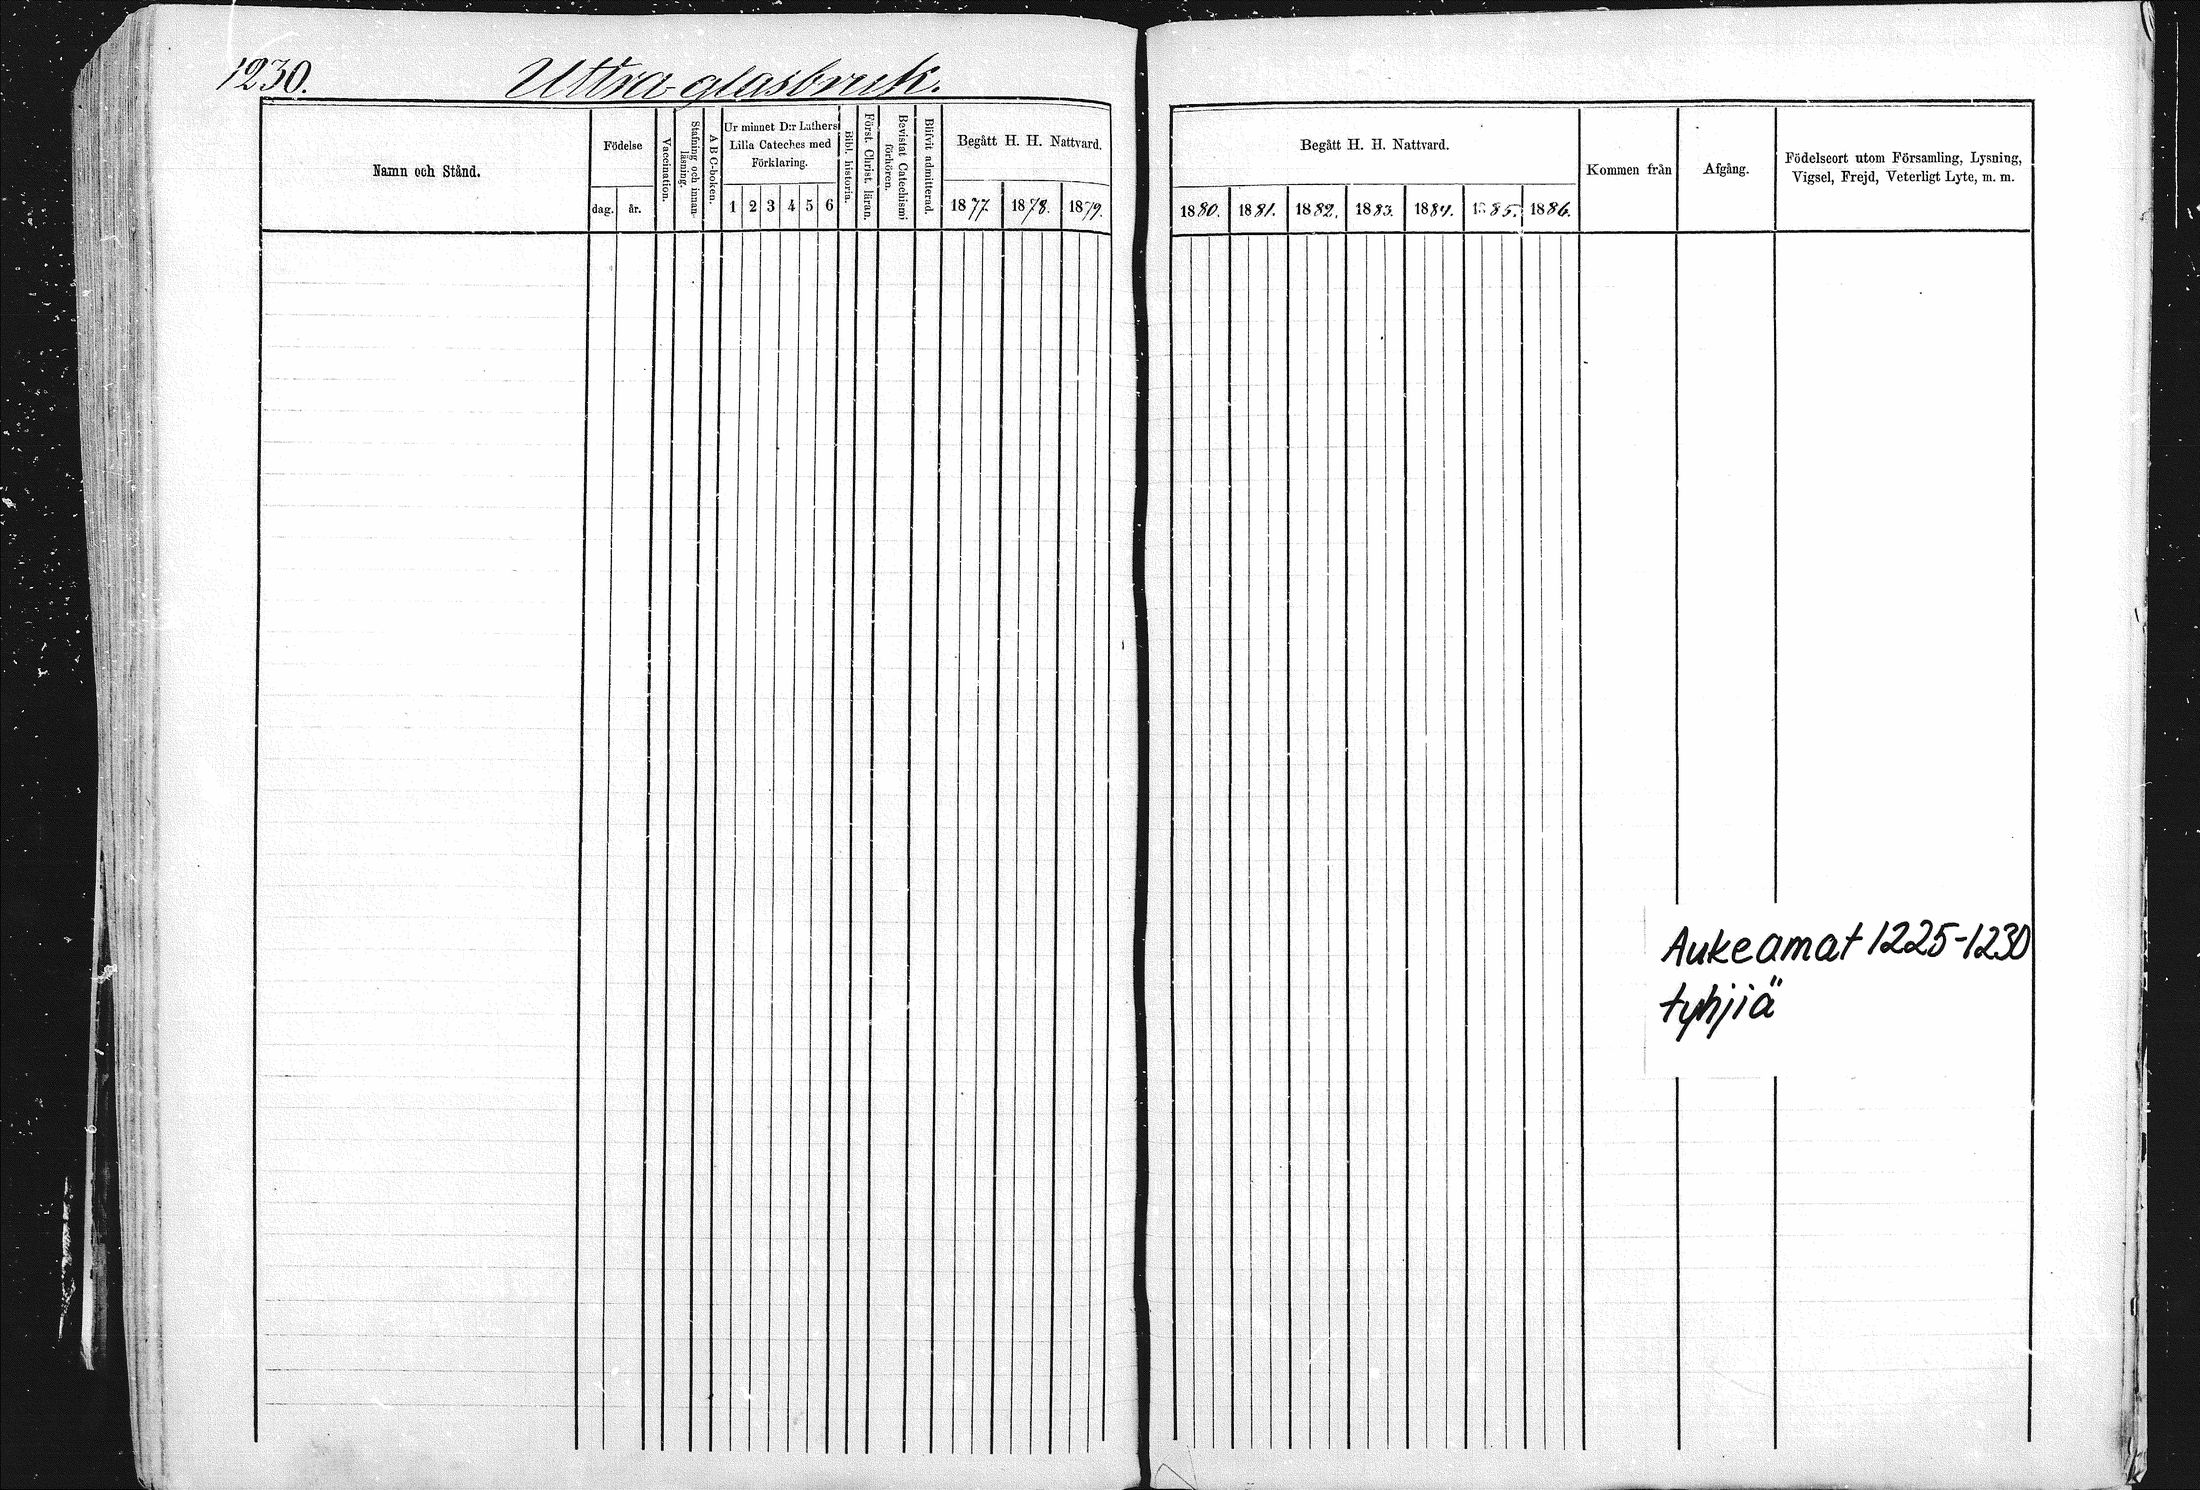 1230. Uttra glasbruk.
Namn och Stånd.
Födelse
dag. år.
Vaccination.
Stafning och innan-
läsning.
A B C-boken.
Ur minnet D:r Luthers
Lilla Cateches med
Förklaring.
1 2 3 4 5 6
Bibl. historia.
Först. Christ. läran.
Bevistat Catechismi
förhören.
Blifvit admitterad.
Begått H. H. Nattvard.
1877. 1878. 1879.
Begått H. H. Nattvard.
1880. 1881. 1882. 1883. 1884. 1885. 1886.
Kommen från
Afgång.
Födelseort utom Församling, Lysning,
Vigsel, Frejd, Veterligt Lyte, m. m.
Aukeamat 1225-1230
tyhjiä